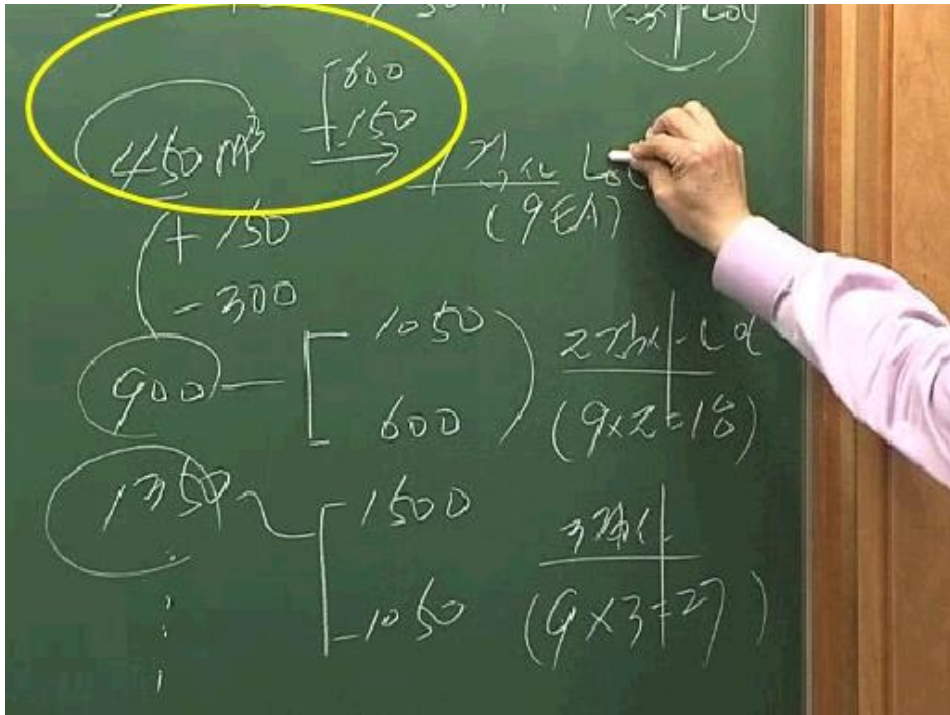 600
450 m³ 150
1검사 Lot
(9EA)
+ 150
- 300
900 1050
600
2검사 Lot
(9×2=18)
1350 1500
1050
3검사
(9×3=27)